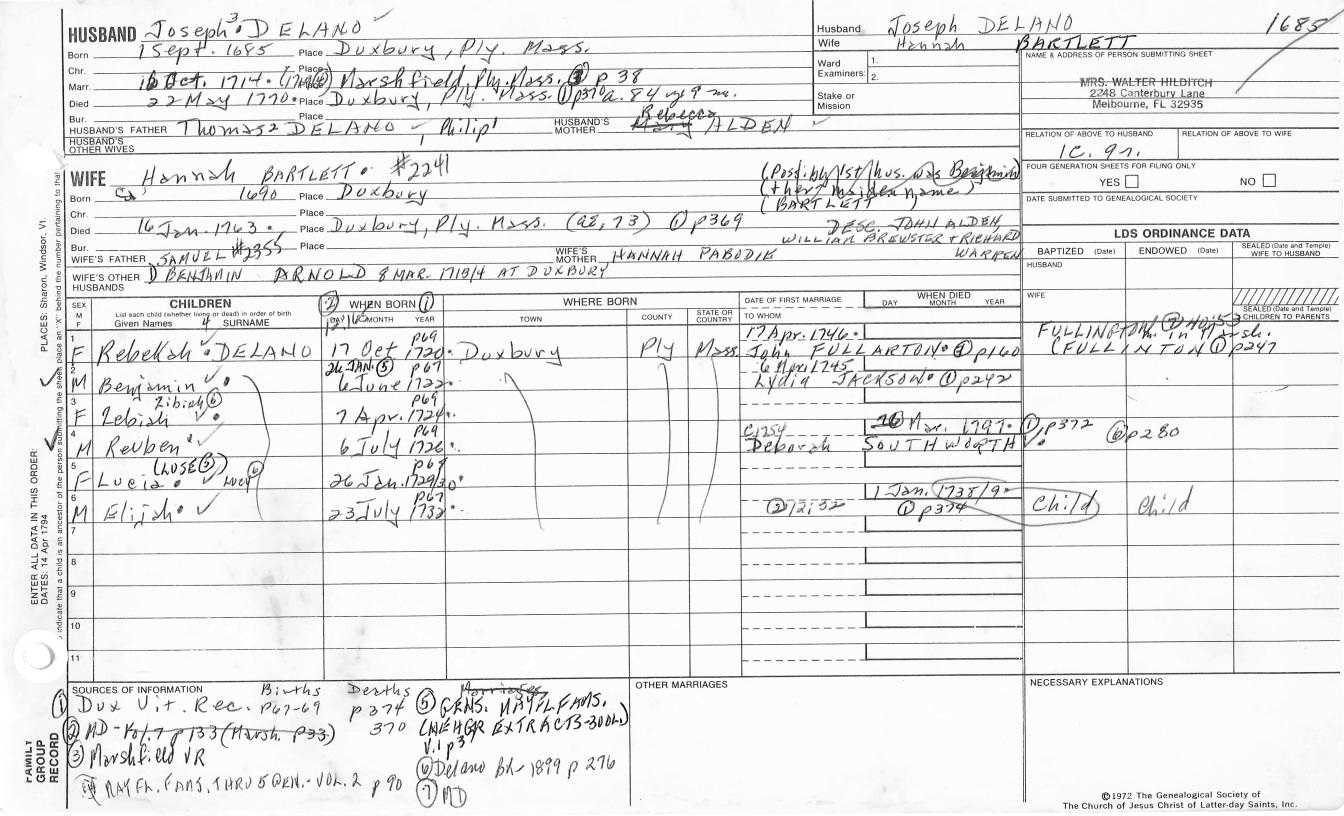 HUSBAND Joseph³ DELANO
Born 1 Sept. 1685 Place Duxbury, Ply. Mass.
Chr. Place
Marr. Oct. 1714 Place Marshfield, Ply. Mass. ③ p 38
Died 22 May 1770 Place Duxbury, Ply. Mass. ① p370 a. 84 y 8 m.
Bur. Place
HUSBAND'S FATHER Thomas² DELANO, Philip¹ HUSBAND'S MOTHER Mary Rebecca ALDEN
HUSBAND'S OTHER WIVES
Husband Joseph DELANO 1685
Wife Hannah BARTLETT
Ward 1.
Examiners: 2.
Stake or Mission
NAME & ADDRESS OF PERSON SUBMITTING SHEET
MRS. WALTER HILDITCH
2248 Canterbury Lane
Melbourne, FL 32935
RELATION OF ABOVE TO HUSBAND RELATION OF ABOVE TO WIFE
1C. 9r.
FOUR GENERATION SHEETS FOR FILING ONLY
YES NO
DATE SUBMITTED TO GENEALOGICAL SOCIETY
WIFE Hannah BARTLETT #2241
(Possibly 1st hus. was Benjamin)
(+ her maiden name)
(BARTLETT
Born ca 1690 Place Duxbury
Chr. Place
Died 16 Jan. 1763 Place Duxbury, Ply. Mass. (ae, 73) ① p369
DESC. JOHN ALDEN,
WILLIAM BREWSTER + RICHARD
WARREN
Bur. Place
WIFE'S FATHER SAMUEL #2355 WIFE'S MOTHER HANNAH PABODIE
WIFE'S OTHER HUSBANDS 1) BENJAMIN ARNOLD 8 MAR. 1713/4 AT DUXBURY
LDS ORDINANCE DATA
BAPTIZED (Date) ENDOWED (Date) SEALED (Date and Temple) WIFE TO HUSBAND
HUSBAND
WIFE
SEALED (Date and Temple) CHILDREN TO PARENTS
SEX M F CHILDREN
List each child (whether living or dead) in order of birth
Given Names 4 SURNAME
② WHEN BORN ①
DAY MONTH YEAR
WHERE BORN
TOWN COUNTY STATE OR COUNTRY
DATE OF FIRST MARRIAGE
TO WHOM
WHEN DIED
DAY MONTH YEAR
1 F Rebekah DELANO 17 Oct 1720 p69 Duxbury Ply Mass. 17 Apr. 1746 John FULLARTON ③ p160
FULLINGTON m. in Marsh.
(FULLINTON ① p247
2 M Benjamin 26 JAN. ⑤ p67 6 June 1722 6 April 1745 Lydia JACKSON ① p242
3 F Zebiah Zibiah ⑥ 7 Apr. 1724 p69
4 M Reuben 6 July 1726 p69 C1754 Deborah SOUTHWORTH 26 Mar. 1797 ① p372 ⑥ p280
5 F Lucia (LUSE ⑤) Lucy ⑥ 26 Jan. 1729/30 p67
6 M Elijah 23 July 1732 p67 1 Jan. 1738/9 ① p374 Child Child
7
8
9
10
11
SOURCES OF INFORMATION Births Deaths Marriages
① Dux Vit. Rec. p67-69 p374
370
② MD - Vol. 7 p133 (Marsh. p33)
③ Marshfield VR
MAYFL. FAMS. THRU 5 GEN. - VOL. 2 p 90
⑤ GENS. MAYFL FAMS.
(NEHGR EXTRACTS-
V.1 p3
⑥ Delano bk-1899 p 276
⑦ MD
OTHER MARRIAGES
NECESSARY EXPLANATIONS
©1972 The Genealogical Society of
The Church of Jesus Christ of Latter-day Saints, Inc.
FAMILY GROUP RECORD
ENTER ALL DATA IN THIS ORDER:
DATES: 14 Apr 1794
PLACES: Sharon, Windsor, Vt.